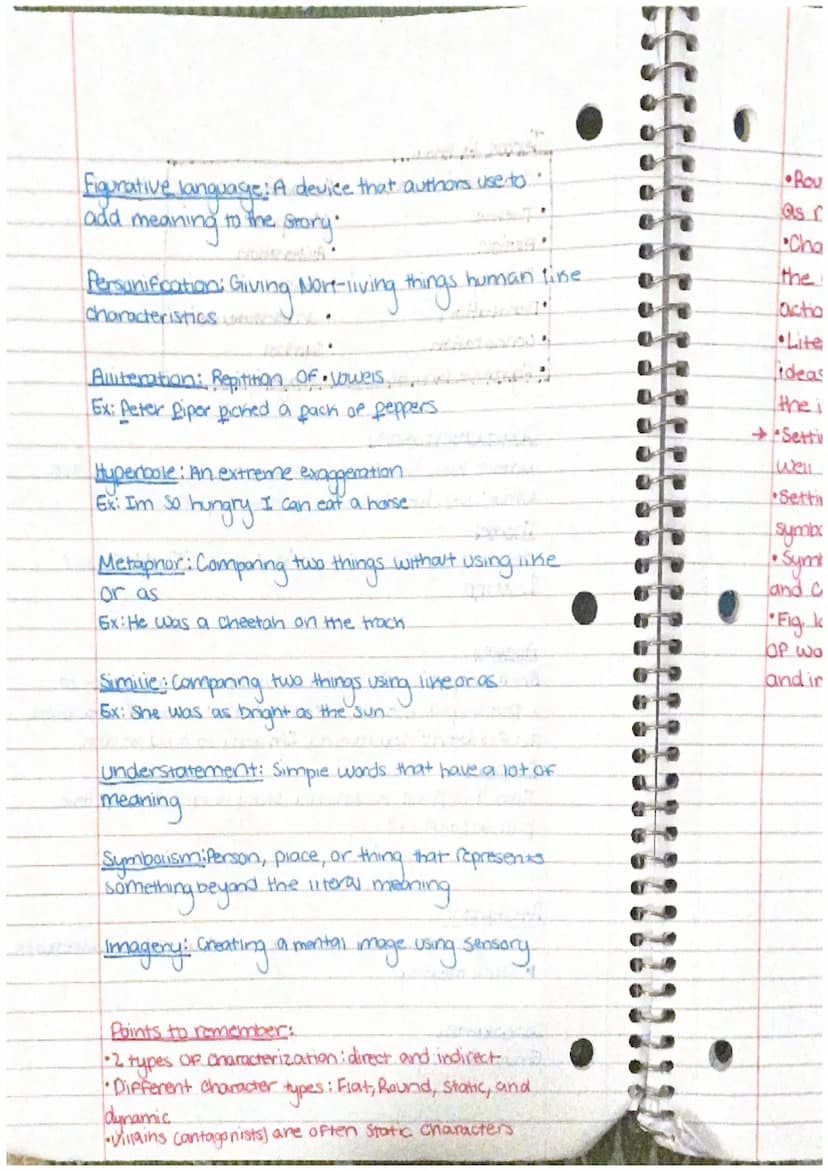 Figurative language: A device that authors use to
add meaning to the story.
Personification: Giving Non-living things human like
characteristics
Alliteration: Repitition of vowels
Ex: Peter Piper picked a pack of peppers
Hyperbole: An extreme exaggeration
Ex: Im so hungry I can eat a horse
Metaphor: Comparing two things without using like
or as
Ex: He was a cheetah on the track
Similie: Comparing two things using like or as
Ex: She was as bright as the sun
Understatement: Simple words that have a lot of
meaning
Symbolism: Person, place, or thing that represents
something beyond the literal meaning
Imagery: Creating a mental image using sensory
Points to remember:
•2 types of characterization: direct and indirect
•Different character types: Flat, Round, static, and
dynamic
•Villains (antagonists) are often static characters
•Rou
as r
•Cha
the
actio
•Lite
ideas
the i
→ •Setti
well
•Settin
symbo
•Sym
and c
•Fig. l
of wo
and in